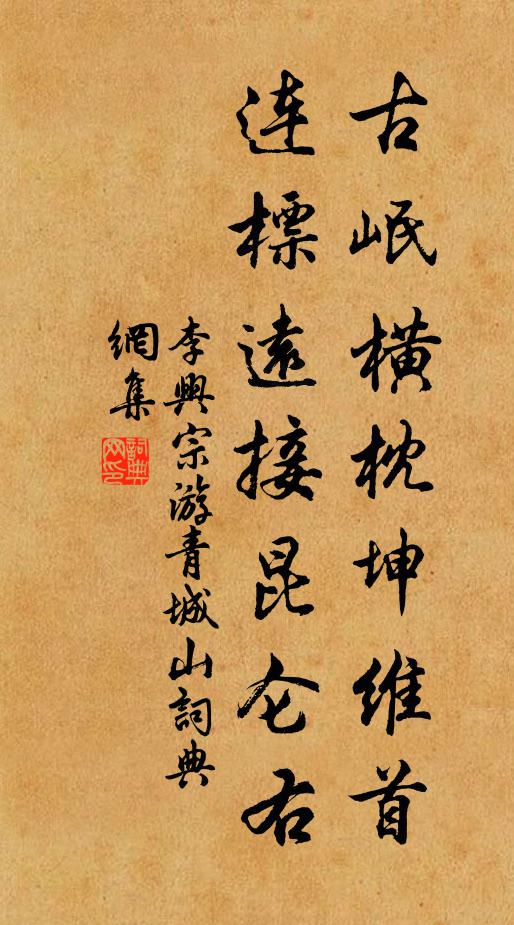 古岷橫枕坤維首
连標遠接昆仑右
李興宗游青城山詞典
網集
詞典網印